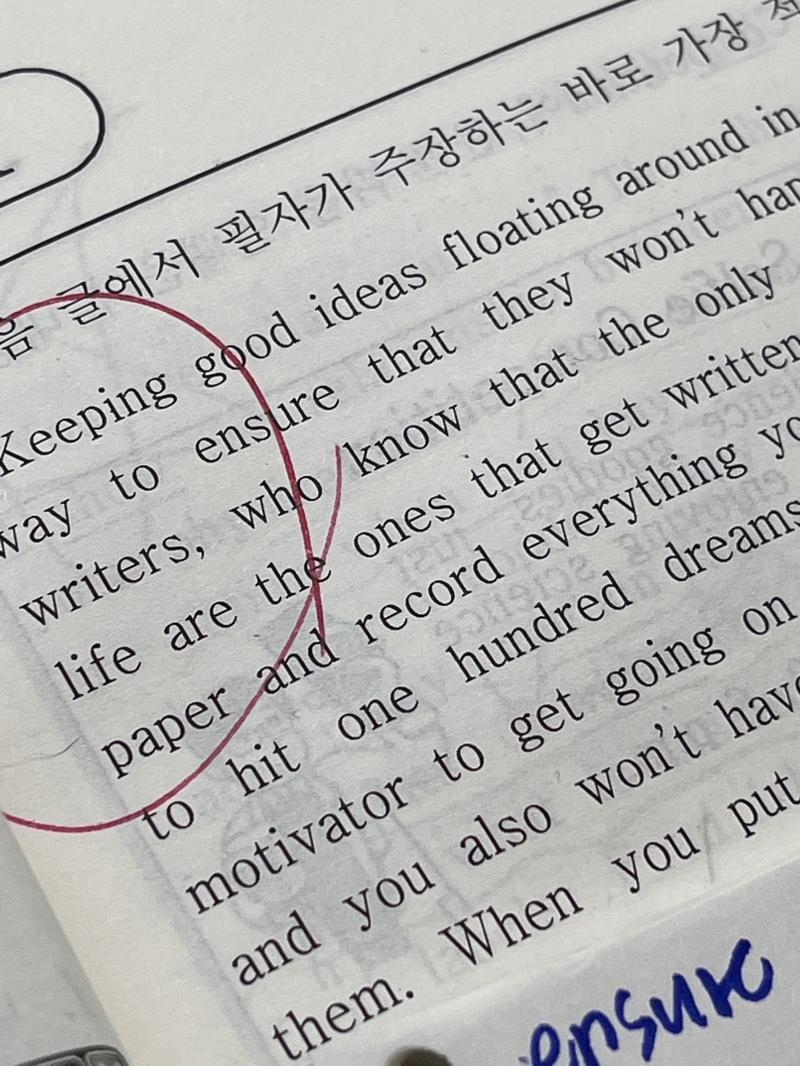 음 글에서 필자가 주장하는 바로 가장
Keeping good ideas floating around in
way to ensure that they won't
writers, who know that the only
life are the ones that get written
paper and record everything
to hit one hundred dreams
motivator to get going on
and you also won't have
them. When you put
ensure